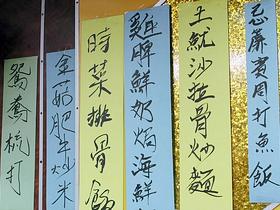 忌廉賓周打魚飯
土魷沙拉骨炒麵
雞脾鮮奶焗海鮮
時菜排骨飯
金菇肥牛炒米
鴛鴦梳打